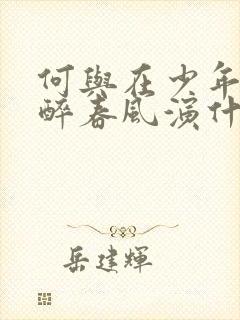 何與在少年
醉春風演什
岳建輝